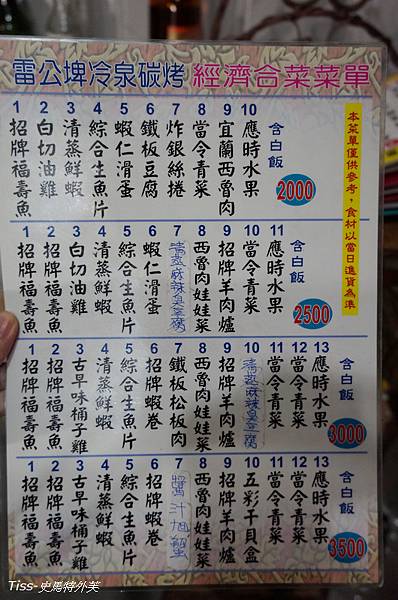 雷公埤冷泉碳烤 經濟合菜菜單
本菜單僅供參考，食材以當日進貨為準
1 招牌福壽魚
2 白切油雞
3 清蒸鮮蝦
4 綜合生魚片
5 蝦仁滑蛋
6 鐵板豆腐
7 炸銀絲捲
8 當令青菜
9 宜蘭西魯肉
10 應時水果
含白飯
2000
1 招牌福壽魚
2 招牌福壽魚
3 白切油雞
4 清蒸鮮蝦
5 綜合生魚片
6 蝦仁滑蛋
7 清蒸麻辣臭豆腐
8 西魯肉娃娃菜
9 招牌羊肉爐
10 當令青菜
11 應時水果
含白飯
2500
1 招牌福壽魚
2 招牌福壽魚
3 古早味桶子雞
4 清蒸鮮蝦
5 綜合生魚片
6 招牌蝦卷
7 鐵板松板肉
8 西魯肉娃娃菜
9 招牌羊肉爐
10 清蒸麻辣臭豆腐
11 當令青菜
12 當令青菜
13 應時水果
含白飯
3000
1 招牌福壽魚
2 招牌福壽魚
3 古早味桶子雞
4 清蒸鮮蝦
5 綜合生魚片
6 招牌蝦卷
7 醬汁旭蟹
8 西魯肉娃娃菜
9 招牌羊肉爐
10 五彩干貝盒
11 當令青菜
12 當令青菜
13 應時水果
含白飯
3500
Tiss-史馬特外芙